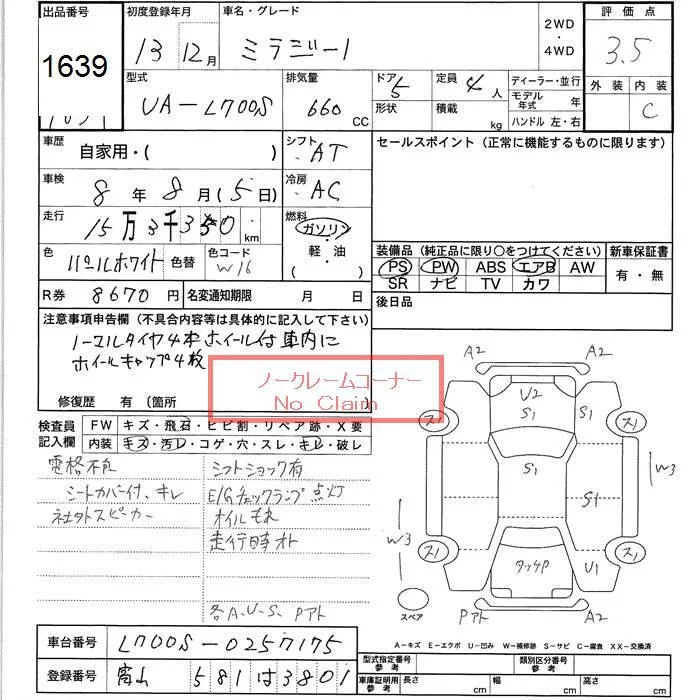 出品番号
1639
初度登録年月
13 12月
車名・グレード
ミラジーノ
2WD
・
4WD
評価点
3.5
外装 内装
C
型式
UA-L700S
排気量
660 CC
ドア 5
形状
定員 4 人
積載 kg
ディーラー・並行
モデル年式 年
ハンドル 左・右
車歴
自家用・( )
シフト
AT
セールスポイント(正常に機能するものに限ります)
車検
8年 8月(5日)
冷房
AC
走行
15万3千350.km
燃料
ガソリン
軽・油
( )
色
パールホワイト 色替
色コード
W16
装備品(純正品に限り○をつけてください)
PS PW ABS エアB AW
SR ナビ TV カワ
新車保証書
有・無
R券 8670円
名変通知期限 月 日
後日品
注意事項申告欄(不具合内容等は具体的に記入して下さい)
ノーマルタイヤ4本ホイール付車内に
ホイールキャップ4枚
修復歴 有〔箇所
ノークレームコーナー
No Claim
検査員記入欄
FW キズ・飛石・ヒビ割・リペア跡・X要
内装 キズ・汚レ・コゲ・穴・スレ・キレ・破レ
電格不良
シートカバー付、キレ
社外スピーカー
シフトショック有
E/Gチェックランプ点灯
オイルもれ
走行時オト
各A、U、S、Pアト
A2 A2
U2
S1 S1
ス1 ス1
W3
S1
S1
W3
ス1 ス1
タッチP U1
スペア
Pアト A2
A-キズ E-エクボ U-凹み W-補修跡 S-サビ C-腐食 XX-交換済
車台番号
L700S-0257175
登録番号
富山 581は3801
型式指定番号 参考
類別区分番号 参考
車庫証明用 参考
長さ cm
幅 cm
高さ cm